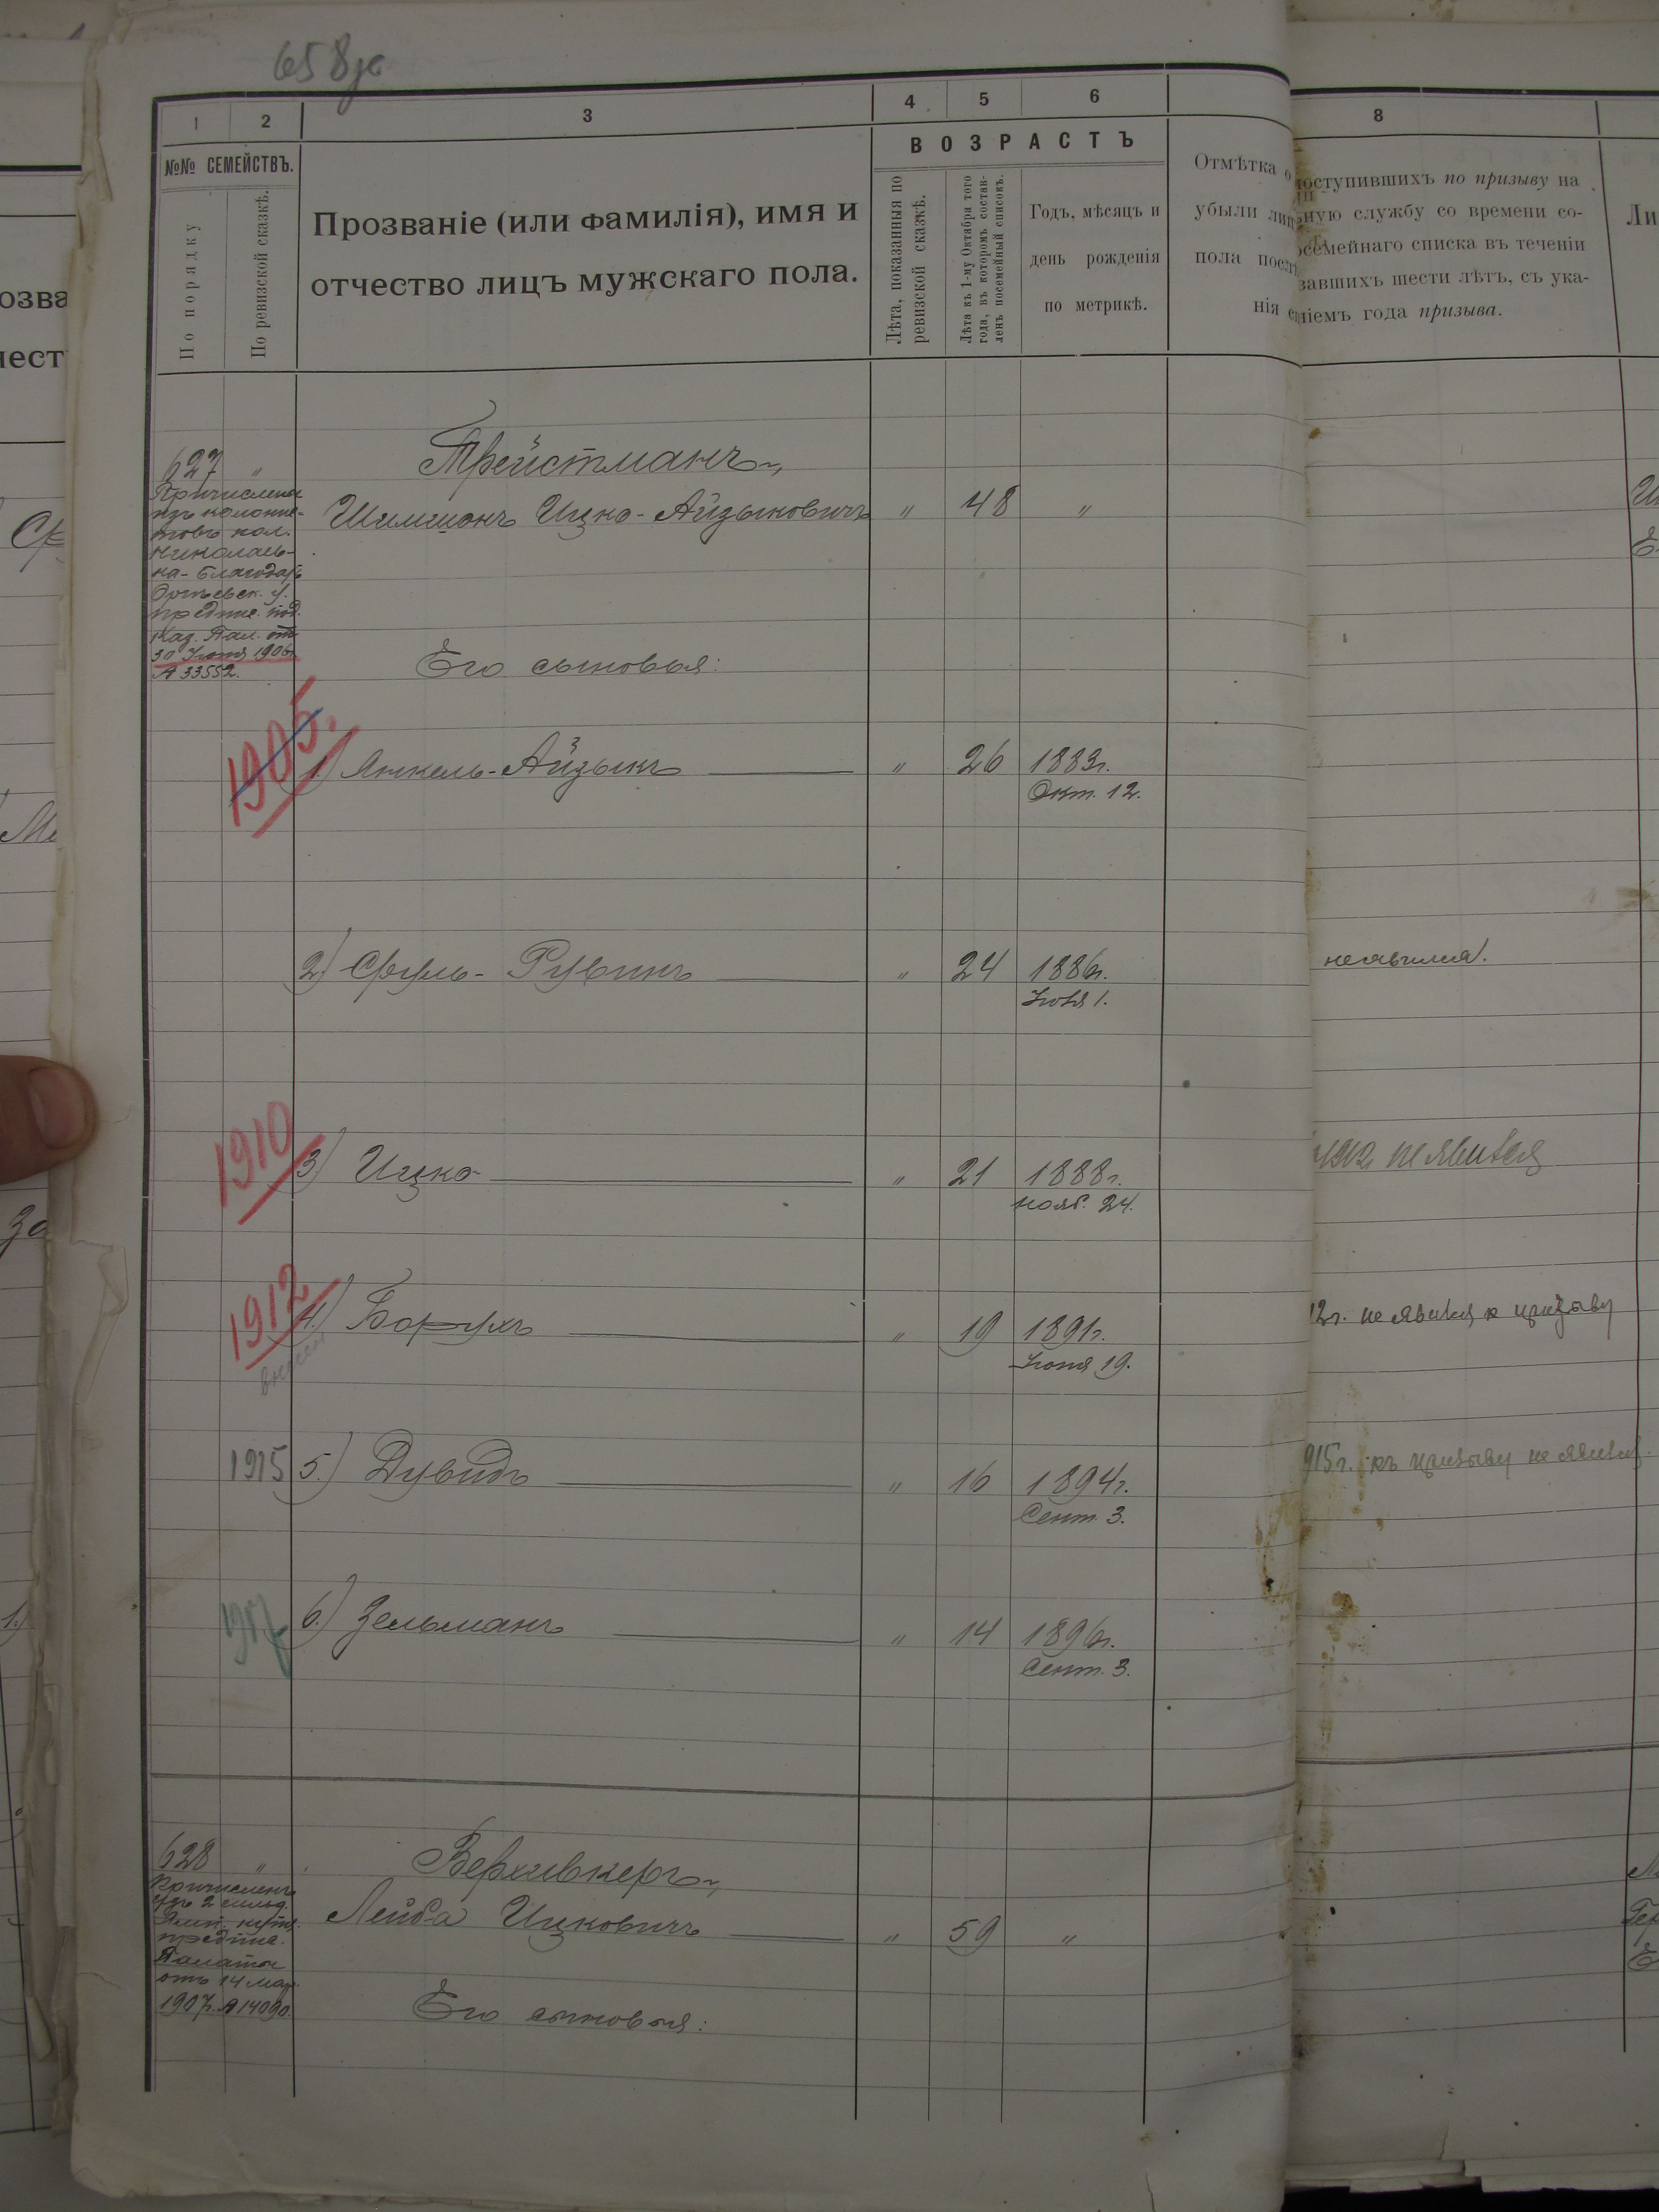 658
1 2 3 4 5 6 8
№№ СЕМЕЙСТВЪ.
По порядку
По ревизской сказкѣ.
Прозваніе (или фамилія), имя и
отчество лицъ мужскаго пола.
ВОЗРАСТЪ
Лѣта, показанныя по
ревизской сказкѣ.
Лѣта къ 1-му Октября того
года, въ которомъ состав-
ленъ посемейный списокъ.
Годъ, мѣсяцъ и
день рожденія
по метрикѣ.
Отмѣтка о
убыли лиц
пола послѣ
нія
поступившихъ по призыву на
ную службу со времени со-
осемейнаго списка въ теченіи
завшихъ шести лѣтъ, съ ука-
ніемъ года призыва.
Ли
озва
чест
627 "
Причислены
изъ колонис-
товъ кол.
Николаев-
ка-Благодар.
предпис. под.
Каз. Пал. отъ
30 Іюня 1906г.
№ 33552.
Трейстманъ,
Шимшонъ Ицко-Айзыковичъ " 48 "
Его сыновья:
1905.
1.) Янкель-Айзыкъ " 26 1883г.
Окт. 12.
2) Сруль-Рувинъ " 24 1886г.
Іюля 1.
неявился.
1910
3) Ицко " 21 1888г.
нояб. 24.
1912 не явился
1912
4.) Борухъ " 19 1891г.
Іюня 19.
внесен
12г. не явился к призыву
1915
5.) Дувидъ " 16 1894г.
Сент. 3.
915г. къ призыву не явился.
1917
6.) Зельманъ " 14 1896г.
Сент. 3.
628 "
Причисленъ
изъ 2 гильд.
Ямп. купц.
предпис.
Палаты
отъ 14 мар.
1907г. № 14090.
Верхивкеръ,
Лейба Ицковичъ " 59 "
Его сыновья: